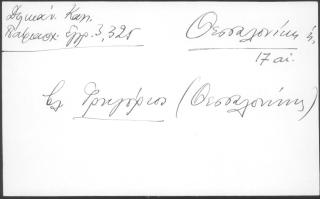 Δηκαν. Καλ.
Παριανά. Έγγρ. 3, 325
Θεσσαλονίκη ἡ,
17 αἰ.
βλ. Γρηγόριος (Θεσσαλονίκης)